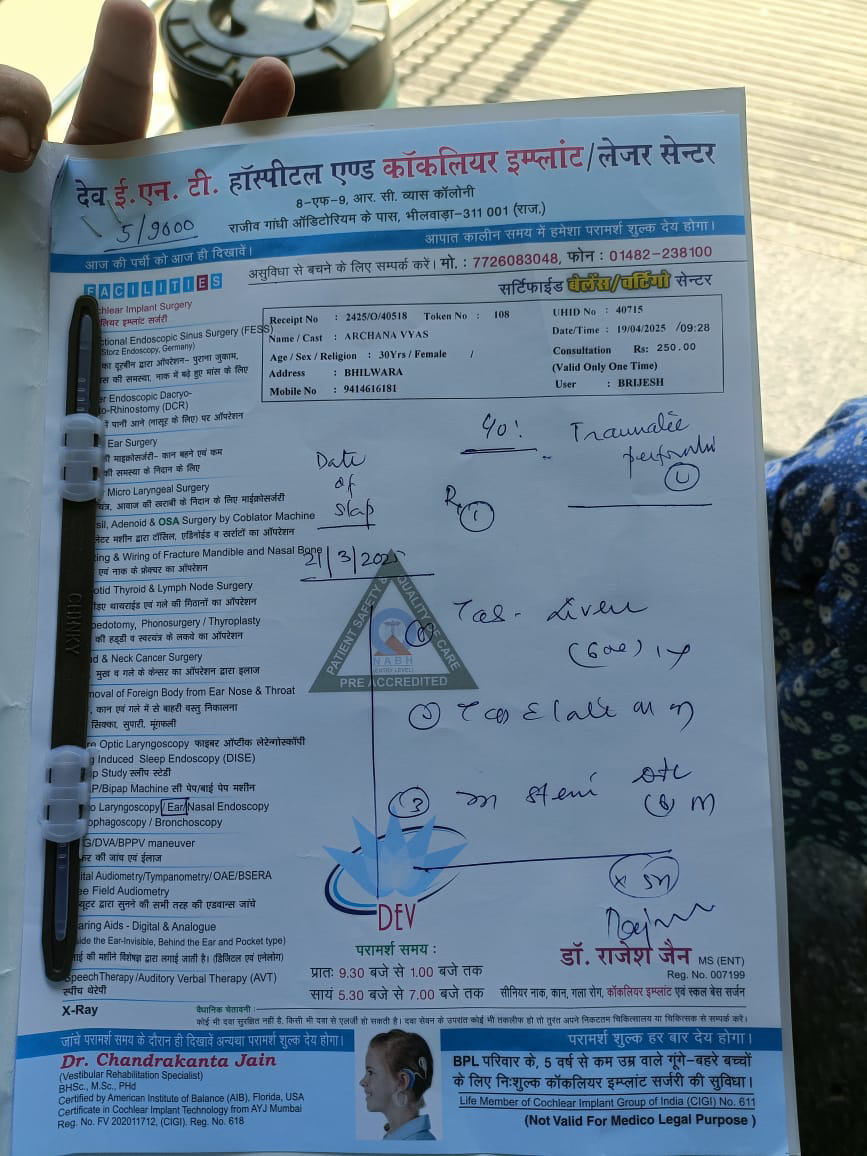 देव ई.एन. टी. हॉस्पीटल एण्ड कॉकलियर इम्प्लांट/लेजर सेन्टर
8-एफ-9, आर. सी. व्यास कॉलोनी
राजीव गांधी ऑडिटोरियम के पास, भीलवाड़ा-311 001 (राज.)
5/9000
आज की पर्ची को आज ही दिखावें।
आपात कालीन समय में हमेशा परामर्श शुल्क देय होगा।
असुविधा से बचने के लिए सम्पर्क करें। मो. : 7726083048, फोन : 01482-238100
FACILITIES
सर्टिफाईड बैलेंस/वर्टिगो सेन्टर
Receipt No : 2425/O/40518 Token No : 108
Name / Cast : ARCHANA VYAS
Age / Sex / Religion : 30Yrs / Female /
Address : BHILWARA
Mobile No : 9414616181
UHID No : 40715
Date/Time : 19/04/2025 /09:28
Consultation Rs: 250.00
(Valid Only One Time)
User : BRIJESH
chlear Implant Surgery
लियर इम्प्लांट सर्जरी
ctional Endoscopic Sinus Surgery (FESS)
Storz Endoscopy, Germany)
का दूरबीन द्वारा ऑपरेशन- पुराना जुकाम,
स की समस्या, नाक में बढ़े हुए मांस के लिए
Endoscopic Dacryo-
o-Rhinostomy (DCR)
में पानी आने (नासूर के लिए) पर ऑपरेशन
Ear Surgery
माइक्रोसर्जरी- कान बहने एवं कम
की समस्या के निदान के लिए
Micro Laryngeal Surgery
यंत्र, आवाज की खराबी के निदान के लिए माईक्रोसर्जरी
sil, Adenoid & OSA Surgery by Coblator Machine
लेटर मशीन द्वारा टॉसिल, एडिनोईड व खर्राटों का ऑपरेशन
ing & Wiring of Fracture Mandible and Nasal Bone
एवं नाक के फ्रेक्चर का ऑपरेशन
otid Thyroid & Lymph Node Surgery
थायराईड एवं गले की गिठानों का ऑपरेशन
pedotomy, Phonosurgery / Thyroplasty
की हड्डी व स्वरयंत्र के लकवे का ऑपरेशन
d & Neck Cancer Surgery
मुख व गले के केन्सर का ऑपरेशन द्वारा इलाज
moval of Foreign Body from Ear Nose & Throat
कान एवं गले में से बाहरी वस्तु निकालना
सिक्का, सुपारी, मूंगफली
Optic Laryngoscopy फाइबर ऑप्टीक लेरेन्गोस्कॉपी
Induced Sleep Endoscopy (DISE)
p Study स्लीप स्टेडी
P/Bipap Machine सी पेप/बाई पेप मशीन
o Laryngoscopy/Ear/Nasal Endoscopy
ophagoscopy / Bronchoscopy
G/DVA/BPPV maneuver
कर की जांच एवं ईलाज
ital Audiometry/Tympanometry/OAE/BSERA
ee Field Audiometry
यूटर द्वारा सुनने की सभी तरह की एडवान्स जांचे
aring Aids - Digital & Analogue
ide the Ear-Invisible, Behind the Ear and Pocket type)
की मशीने विशेषज्ञ द्वारा लगाई जाती है। (डिजिटल एवं एनेलोग)
SpeechTherapy/Auditory Verbal Therapy (AVT)
स्पीच थेरेपी
X-Ray
Date
of
slap
21/3/2025
Traumatic
(L)
1
PATIENT SAFETY & QUALITY OF CARE
NABH
PRE ACCREDITED
3
DEV
परामर्श समय :
प्रातः 9.30 बजे से 1.00 बजे तक
सायं 5.30 बजे से 7.00 बजे तक
डॉ. राजेश जैन MS (ENT)
Reg. No. 007199
सीनियर नाक, कान, गला रोग, कॉकलियर इम्प्लांट एवं स्कल बेस सर्जन
वैधानिक चेतावनी :
कोई भी दवा सुरक्षित नही है. किसी भी दवा से एलर्जी हो सकती है। दवा सेवन के उपरांत कोई भी तकलीफ हो तो तुरंत अपने निकटतम चिकित्सालय या चिकित्सक से सम्पर्क करे।
जांचे परामर्श समय के दौरान ही दिखावें अन्यथा परामर्श शुल्क देय होगा।
परामर्श शुल्क हर बार देय होगा।
Dr. Chandrakanta Jain
(Vestibular Rehabilitation Specialist)
BHSc., M.Sc., PHd
Certified by American Institute of Balance (AIB), Florida, USA
Certificate in Cochlear Implant Technology from AYJ Mumbai
Reg. No. FV 202011712, (CIGI). Reg. No. 618
BPL परिवार के, 5 वर्ष से कम उम्र वाले गूंगे-बहरे बच्चों
के लिए निःशुल्क कॉकलियर इम्प्लांट सर्जरी की सुविधा।
Life Member of Cochlear Implant Group of India (CIGI) No. 611
(Not Valid For Medico Legal Purpose )